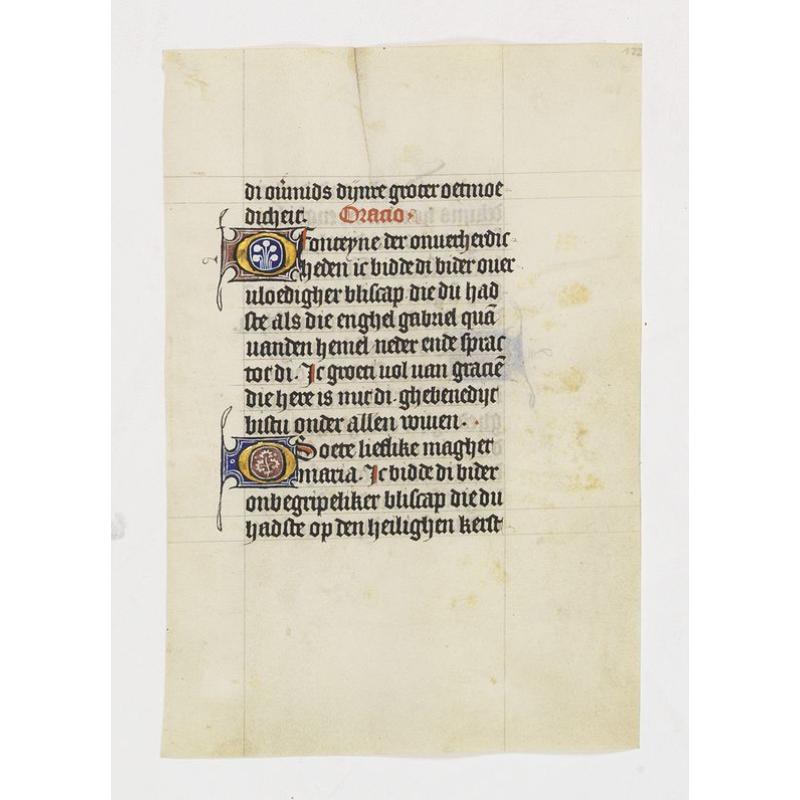 122
di ou̅mids dijnre groter oetmoe
dicheit. Oracio.
O fonteyne der onuerherdic
heden ic bidde di bider ouer
uloedigher bliscap die du had
ste als die enghel gabriel qua̅
vanden hemel neder ende sprac
tot di. Ic groeti uol uan gracie̅
die here is mit di. ghebenedijt
bistu onder allen wiuen.
O Soete lieflike magher
maria. Ic bidde di bider
onbegripeliker bliscap die du
hadste op den heilighen kerst